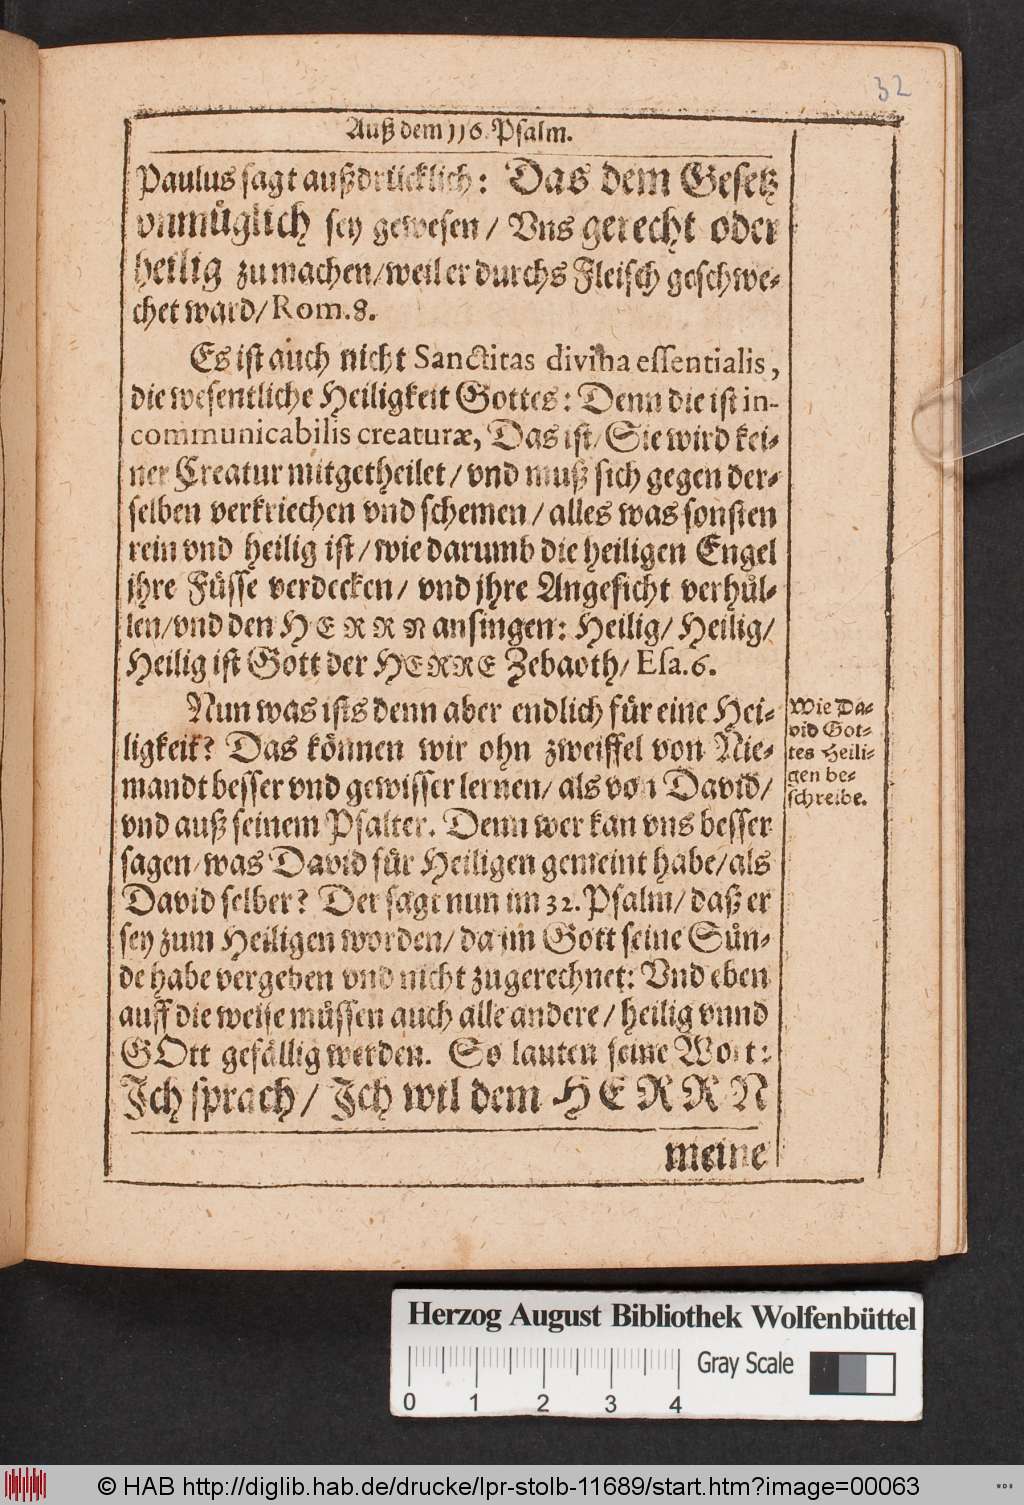 32
Auß dem 116. Psalm.
Paulus sagt außdrücklich: Das dem Gesetz
vnmuͤglich sey gewesen / Vns gerecht oder
heilig zu machen/weil er durchs Fleisch geschwe-
chet ward/ Rom. 8.
Es ist auch nicht Sanctitas divina essentialis,
die wesentliche Heiligkeit Gottes: Denn die ist in-
communicabilis creaturæ, Das ist/ Sie wird kei-
ner Creatur mitgetheilet / vnd muß sich gegen der-
selben verkriechen vnd schemen / alles was sonsten
rein vnd heilig ist / wie darumb die heiligen Engel
jhre Fuͤsse verdecken/ vnd jhre Angesicht verhuͤl-
len/vnd den HERRN ansingen: Heilig/ Heilig/
Heilig ist Gott der HERRE Zebaoth/ Esa. 6.
Nun was ists denn aber endlich fuͤr eine Hei-
ligkeit? Das koͤnnen wir ohn zweiffel von Nie-
mandt besser vnd gewisser lernen/ als von David/
vnd auß seinem Psalter. Denn wer kan vns besser
sagen/was David fuͤr Heiligen gemeint habe/als
David selber? Der sagt nun im 32. Psalm/ daß er
sey zum Heiligen worden/ da jm Gott seine Suͤn-
de habe vergeben vnd nicht zugerechnet: Vnd eben
auff die weise muͤssen auch alle andere / heilig vnnd
GOtt gefaͤllig werden. So lauten seine Wort:
Ich sprach / Ich wil dem HERRN
meine
Wie Da-
vid Got-
tes Heili-
gen be-
schreibe.
Herzog August Bibliothek Wolfenbüttel
Gray Scale
0 1 2 3 4
© HAB http://diglib.hab.de/drucke/lpr-stolb-11689/start.htm?image=00063